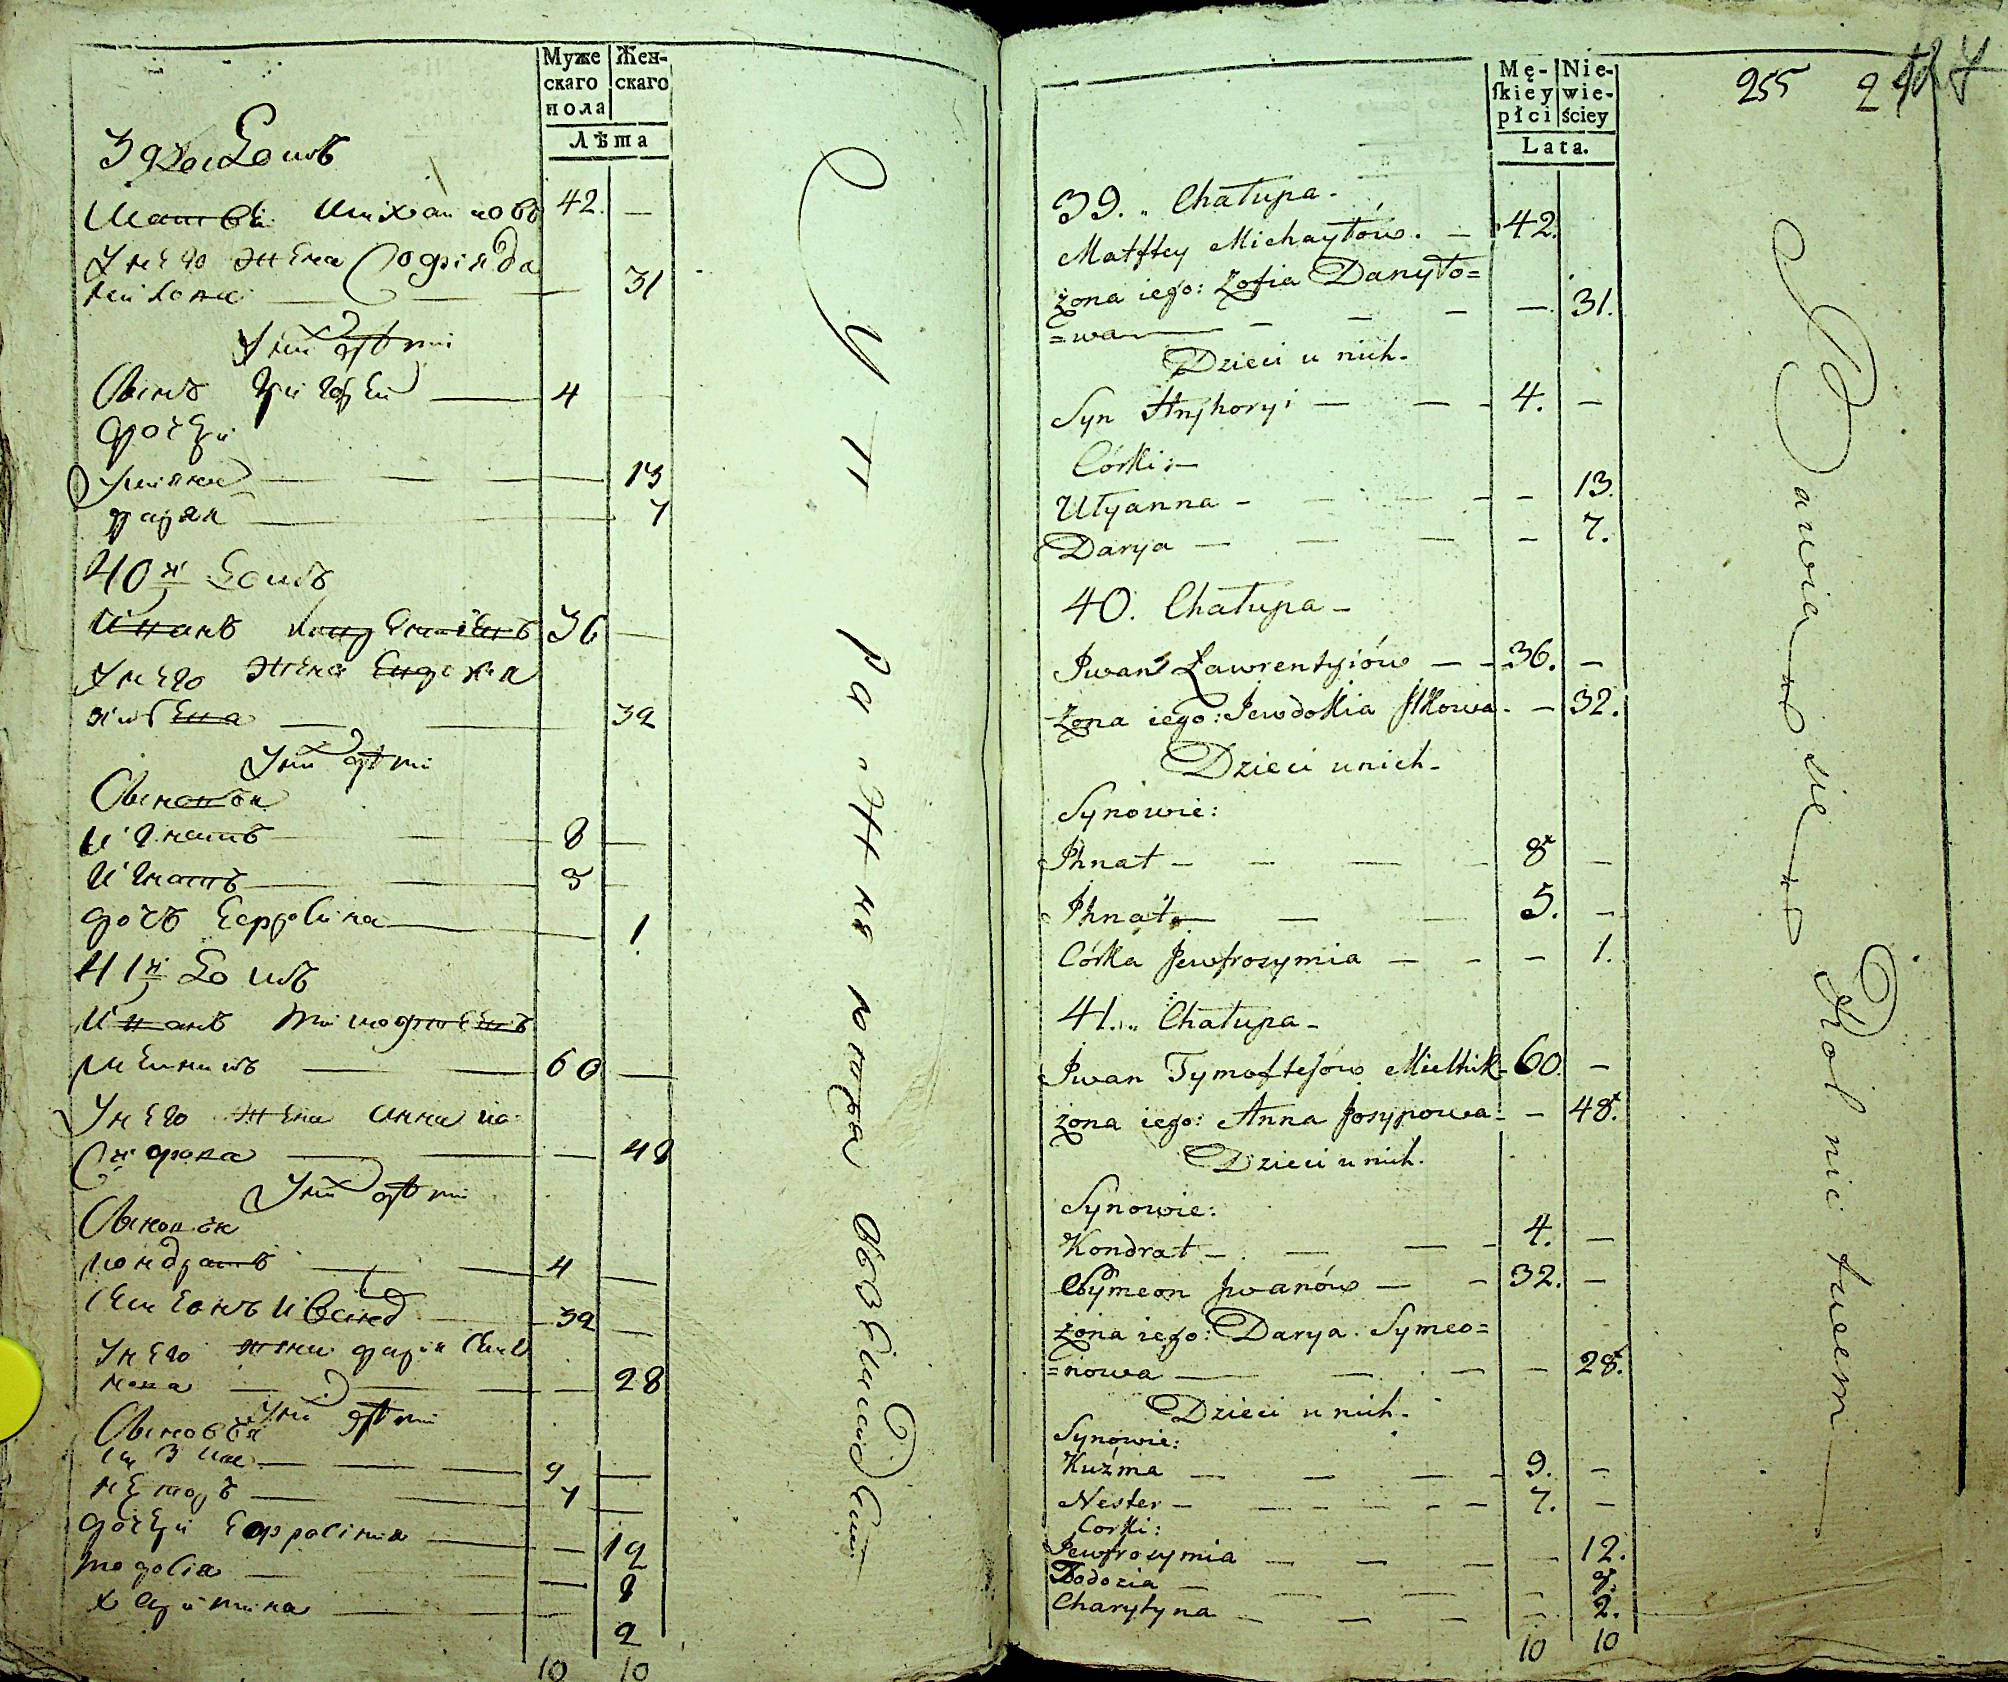 Муже
скаго
пола
Жен-
скаго
Лѣта
39 домъ
Матвѣй Михайловъ 42. —
У него жена Софія Да
нилова — — — 31
У ни дѣти
Сынъ Григорей — 4
дочери
Уліяна — — — 13
дарья — — 7
40й домъ
Иванъ Лаврентіевъ 36 —
У него жена Евдокія
— — 32
У ни дѣти
Сыновья
Игнатъ — — 8 —
Игнатъ — — 5 —
дочь Ефросина — 1
41й домъ
Иванъ Тимофѣевъ
мелникъ — — 60 —
У него жена Анна Іо
сифова — — — 48
У ни дѣти
Сыновья
Кондратъ — — 4 —
Семіонъ Ивановъ — 32 —
У него жена дарія Семіо
нова — — — 28
У ни дѣти
Сыновья
Кузма — — — 9 —
Несторъ — — 7 —
дочери Ефросинія — — 12
Тодосія — — 8
Харитина — — 2
10 10
Упражняются въ земледѣліи
255
Mę-
ſkiey
płci
Nie-
wie-
ściey
Lata.
39. Chałupa -
Matftey Michayłów. — 42.
żona iego: Zofia Danyło=
=wa — — — — — 31.
Dzieci u nich.
Syn Hryhoryi — — - 4. —
Córki: —
Ulyanna - — — - - 13.
Darya — — — - 7.
40. Chałupa -
Jwan Ławrentyiów — - 36. —
żona iego: Jewdokia Jlkowa. — 32.
Dzieci u nich -
Synowie:
Jhnat - — — - 8 —
Jhnat — — — 5. -
Córka Jewfrosymia — - - 1.
41. Chałupa -
Jwan Tymoftejów Mielnik - 60. —
żona iego: Anna Josypowa: - 48.
Dzieci u nich.
Synowie:
Kondrat - — — - 4. —
Symeon Jwanów — - 32. —
żona iego: Darya Symeo=
=nowa — — - — 28.
Dzieci u nich.
Synowie:
Kuźma — — — - 9. -
Nester - — — - - 7. —
Corki:
Jewfrosymia — — — - 12.
Todozia — — — - 8.
Charytyna — — — - 2.
10 10
Bawią się Rolnictwem